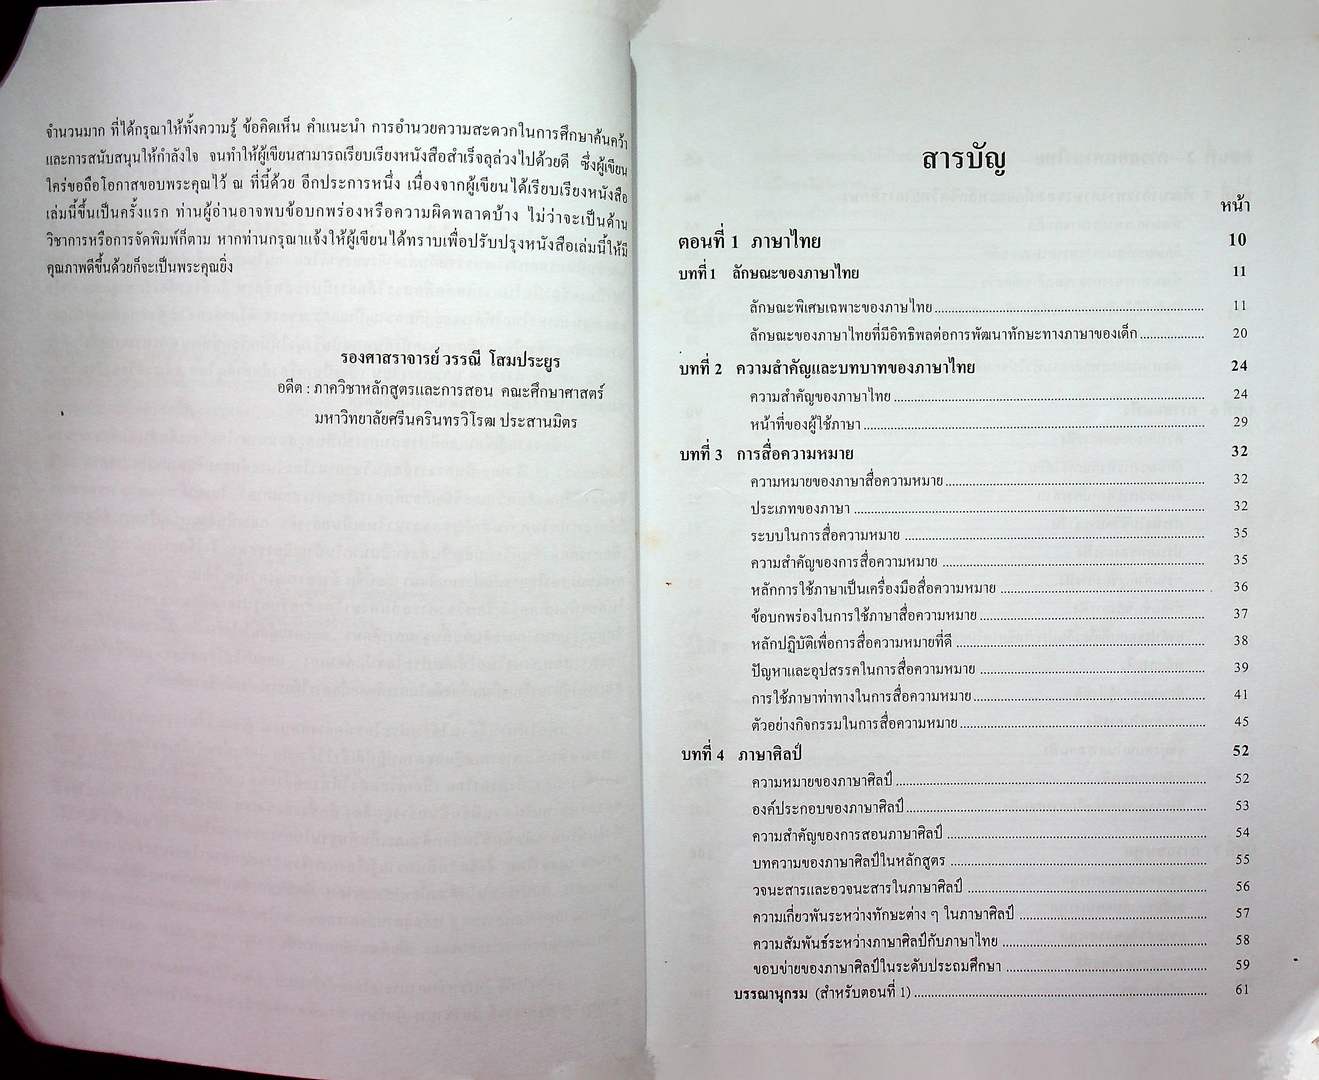 จำนวนมาก ที่ได้กรุณาให้ทั้งความรู้ ข้อคิดเห็น คำแนะนำ การอำนวยความสะดวกในการศึกษาค้นคว้า
และการสนับสนุนให้กำลังใจ จนทำให้ผู้เขียนสามารถเรียบเรียงหนังสือสำเร็จลุล่วงไปด้วยดี ซึ่งผู้เขียน
ใคร่ขอถือโอกาสขอบพระคุณไว้ ณ ที่นี้ด้วย อีกประการหนึ่ง เนื่องจากผู้เขียนได้เรียบเรียงหนังสือ
เล่มนี้ขึ้นเป็นครั้งแรก ท่านผู้อ่านอาจพบข้อบกพร่องหรือความผิดพลาดบ้าง ไม่ว่าจะเป็นด้าน
วิชาการหรือการจัดพิมพ์ก็ตาม หากท่านกรุณาแจ้งให้ผู้เขียนได้ทราบเพื่อปรับปรุงหนังสือเล่มนี้ให้มี
คุณภาพดีขึ้นด้วยก็จะเป็นพระคุณยิ่ง
รองศาสราจารย์ วรรณี โสมประยูร
อดีต : ภาควิชาหลักสูตรและการสอน คณะศึกษาศาสตร์
มหาวิทยาลัยศรีนครินทรวิโรฒ ประสานมิตร
สารบัญ
หน้า
ตอนที่ 1 ภาษาไทย 10
บทที่ 1 ลักษณะของภาษาไทย 11
ลักษณะพิเศษเฉพาะของภาษไทย 11
ลักษณะของภาษาไทยที่มีอิทธิพลต่อการพัฒนาทักษะทางภาษาของเด็ก 20
บทที่ 2 ความสำคัญและบทบาทของภาษาไทย 24
ความสำคัญของภาษาไทย 24
หน้าที่ของผู้ใช้ภาษา 29
บทที่ 3 การสื่อความหมาย 32
ความหมายของภาษาสื่อความหมาย 32
ประเภทของภาษา 32
ระบบในการสื่อความหมาย 35
ความสำคัญของการสื่อความหมาย 35
หลักการใช้ภาษาเป็นเครื่องมือสื่อความหมาย 36
ข้อบกพร่องในการใช้ภาษาสื่อความหมาย 37
หลักปฏิบัติเพื่อการสื่อความหมายที่ดี 38
ปัญหาและอุปสรรคในการสื่อความหมาย 39
การใช้ภาษาท่าทางในการสื่อความหมาย 41
ตัวอย่างกิจกรรมในการสื่อความหมาย 45
บทที่ 4 ภาษาศิลป์ 52
ความหมายของภาษาศิลป์ 52
องค์ประกอบของภาษาศิลป์ 53
ความสำคัญของการสอนภาษาศิลป์ 54
บทความของภาษาศิลป์ในหลักสูตร 55
วจนะสารและอวจนะสารในภาษาศิลป์ 56
ความเกี่ยวพันระหว่างทักษะต่าง ๆ ในภาษาศิลป์ 57
ความสัมพันธ์ระหว่างภาษาศิลป์กับภาษาไทย 58
ขอบข่ายของภาษาศิลป์ในระดับประถมศึกษา 59
บรรณานุกรม (สำหรับตอนที่ 1) 61